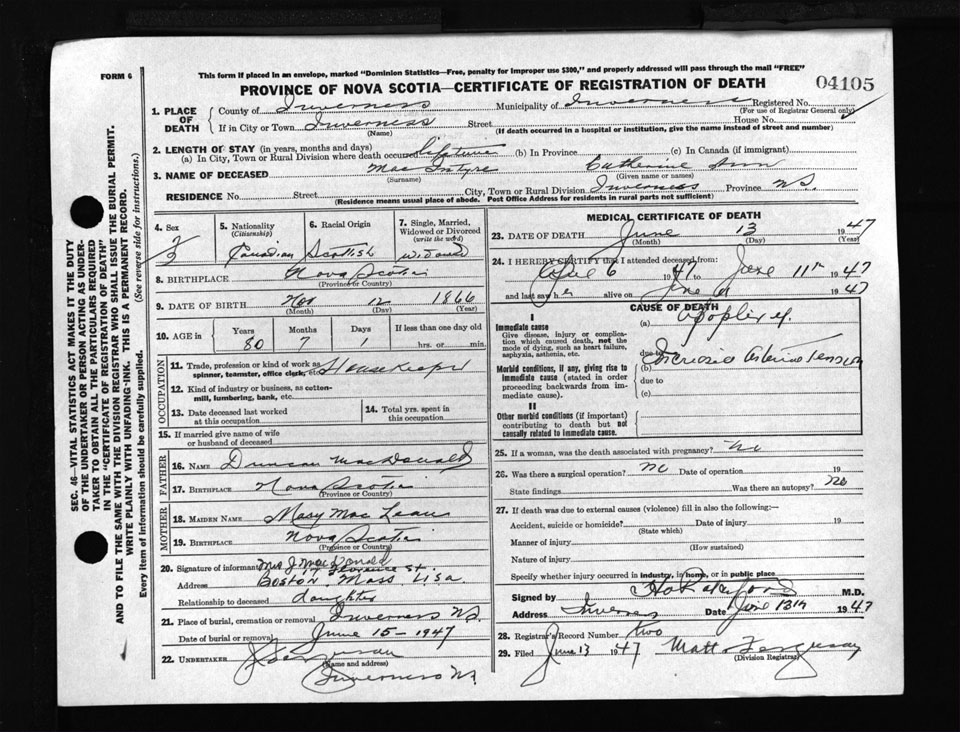 FORM 6
This form if placed in an envelope, marked "Dominion Statistics—Free, penalty for improper use $300," and properly addressed will pass through the mail "FREE"
PROVINCE OF NOVA SCOTIA—CERTIFICATE OF REGISTRATION OF DEATH
04105
SEC. 46—VITAL STATISTICS ACT MAKES IT THE DUTY
OF THE UNDERTAKER OR PERSON ACTING AS UNDER-
TAKER TO OBTAIN ALL THE PARTICULARS REQUIRED
IN THE "CERTIFICATE OF REGISTRATION OF DEATH"
AND TO FILE THE SAME WITH THE DIVISION REGISTRAR WHO SHALL ISSUE THE BURIAL PERMIT.
WRITE PLAINLY WITH UNFADING-INK. THIS IS A PERMANENT RECORD.
Every item of information should be carefully supplied. (See reverse side for instructions.)
1. PLACE OF DEATH
County of Inverness Municipality of Inverness Registered No.
(For use of Registrar General only)
If in City or Town Inverness Street House No.
(Name) (If death occurred in a hospital or institution, give the name instead of street and number)
2. LENGTH OF STAY (in years, months and days)
(a) In City, Town or Rural Division where death occurred lifetime (b) In Province (c) In Canada (if immigrant)
3. NAME OF DECEASED Mac Intyre Catherine Ann
(Surname) (Given name or names)
RESIDENCE No. Street City, Town or Rural Division Inverness Province N.S.
(Residence means usual place of abode. Post Office Address for residents in rural parts not sufficient)
4. Sex
5. Nationality (Citizenship) Canadian
6. Racial Origin Scottish
7. Single, Married, Widowed or Divorced (write the word) Widowed
8. BIRTHPLACE Nova Scotia
(Province or Country)
9. DATE OF BIRTH Nov 12 1866
(Month) (Day) (Year)
10. AGE in Years Months Days If less than one day old
80 7 1 hrs. or min.
OCCUPATION
11. Trade, profession or kind of work as spinner, teamster, office clerk, etc. Housekeeper
12. Kind of industry or business, as cotton-mill, lumbering, bank, etc.
13. Date deceased last worked at this occupation
14. Total yrs. spent in this occupation
15. If married give name of wife or husband of deceased
FATHER
16. NAME Duncan MacDonald
17. BIRTHPLACE Nova Scotia
(Province or Country)
MOTHER
18. MAIDEN NAME Mary Mac Lean
19. BIRTHPLACE Nova Scotia
(Province or Country)
20. Signature of informant Mrs J. MacDonald
17 Florence St.
Address Boston Mass Usa.
Relationship to deceased daughter
21. Place of burial, cremation or removal Inverness N.S.
Date of burial or removal June 15 - 1947
22. UNDERTAKER J Ferguson
(Name and address)
Inverness N.S.
MEDICAL CERTIFICATE OF DEATH
23. DATE OF DEATH June 13 1947
(Month) (Day) (Year)
24. I HEREBY CERTIFY that I attended deceased from:
April 6 1947 to June 11th 1947
and last saw her alive on June 11 1947
CAUSE OF DEATH
I
Immediate cause
Give disease, injury or complication which caused death, not the mode of dying, such as heart failure, asphyxia, asthenia, etc.
(a) Apoplexy.
due to
Morbid conditions, if any, giving rise to immediate cause (stated in order proceeding backwards from immediate cause).
(b) Increased Arterial Tension
due to
(c)
II
Other morbid conditions (if important) contributing to death but not causally related to immediate cause.
25. If a woman, was the death associated with pregnancy? no
26. Was there a surgical operation? no Date of operation 19
State findings Was there an autopsy? no
27. If death was due to external causes (violence) fill in also the following:—
Accident, suicide or homicide? Date of injury 19
(State which)
Manner of injury
(How sustained)
Nature of injury
Specify whether injury occurred in industry, in home, or in public place
Signed by M.D.
Address Inverness Date June 13th 1947
28. Registrar's Record Number two
29. Filed June 13 1947 Matt Ferguson
(Division Registrar)